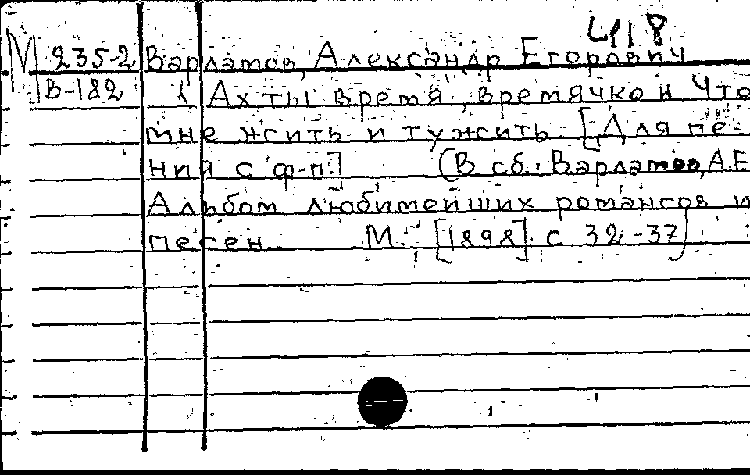 418
М 235-2 Варламов, Александр Егорович
В-182 1 Ах ты время, времячко и Что
мне жить и тужить. [Для пе-
ния с ф-п.] (В сб.: Варламов, А.Е.
Альбом любимейших романсов и
песен. М. [1898]. с 32-37)